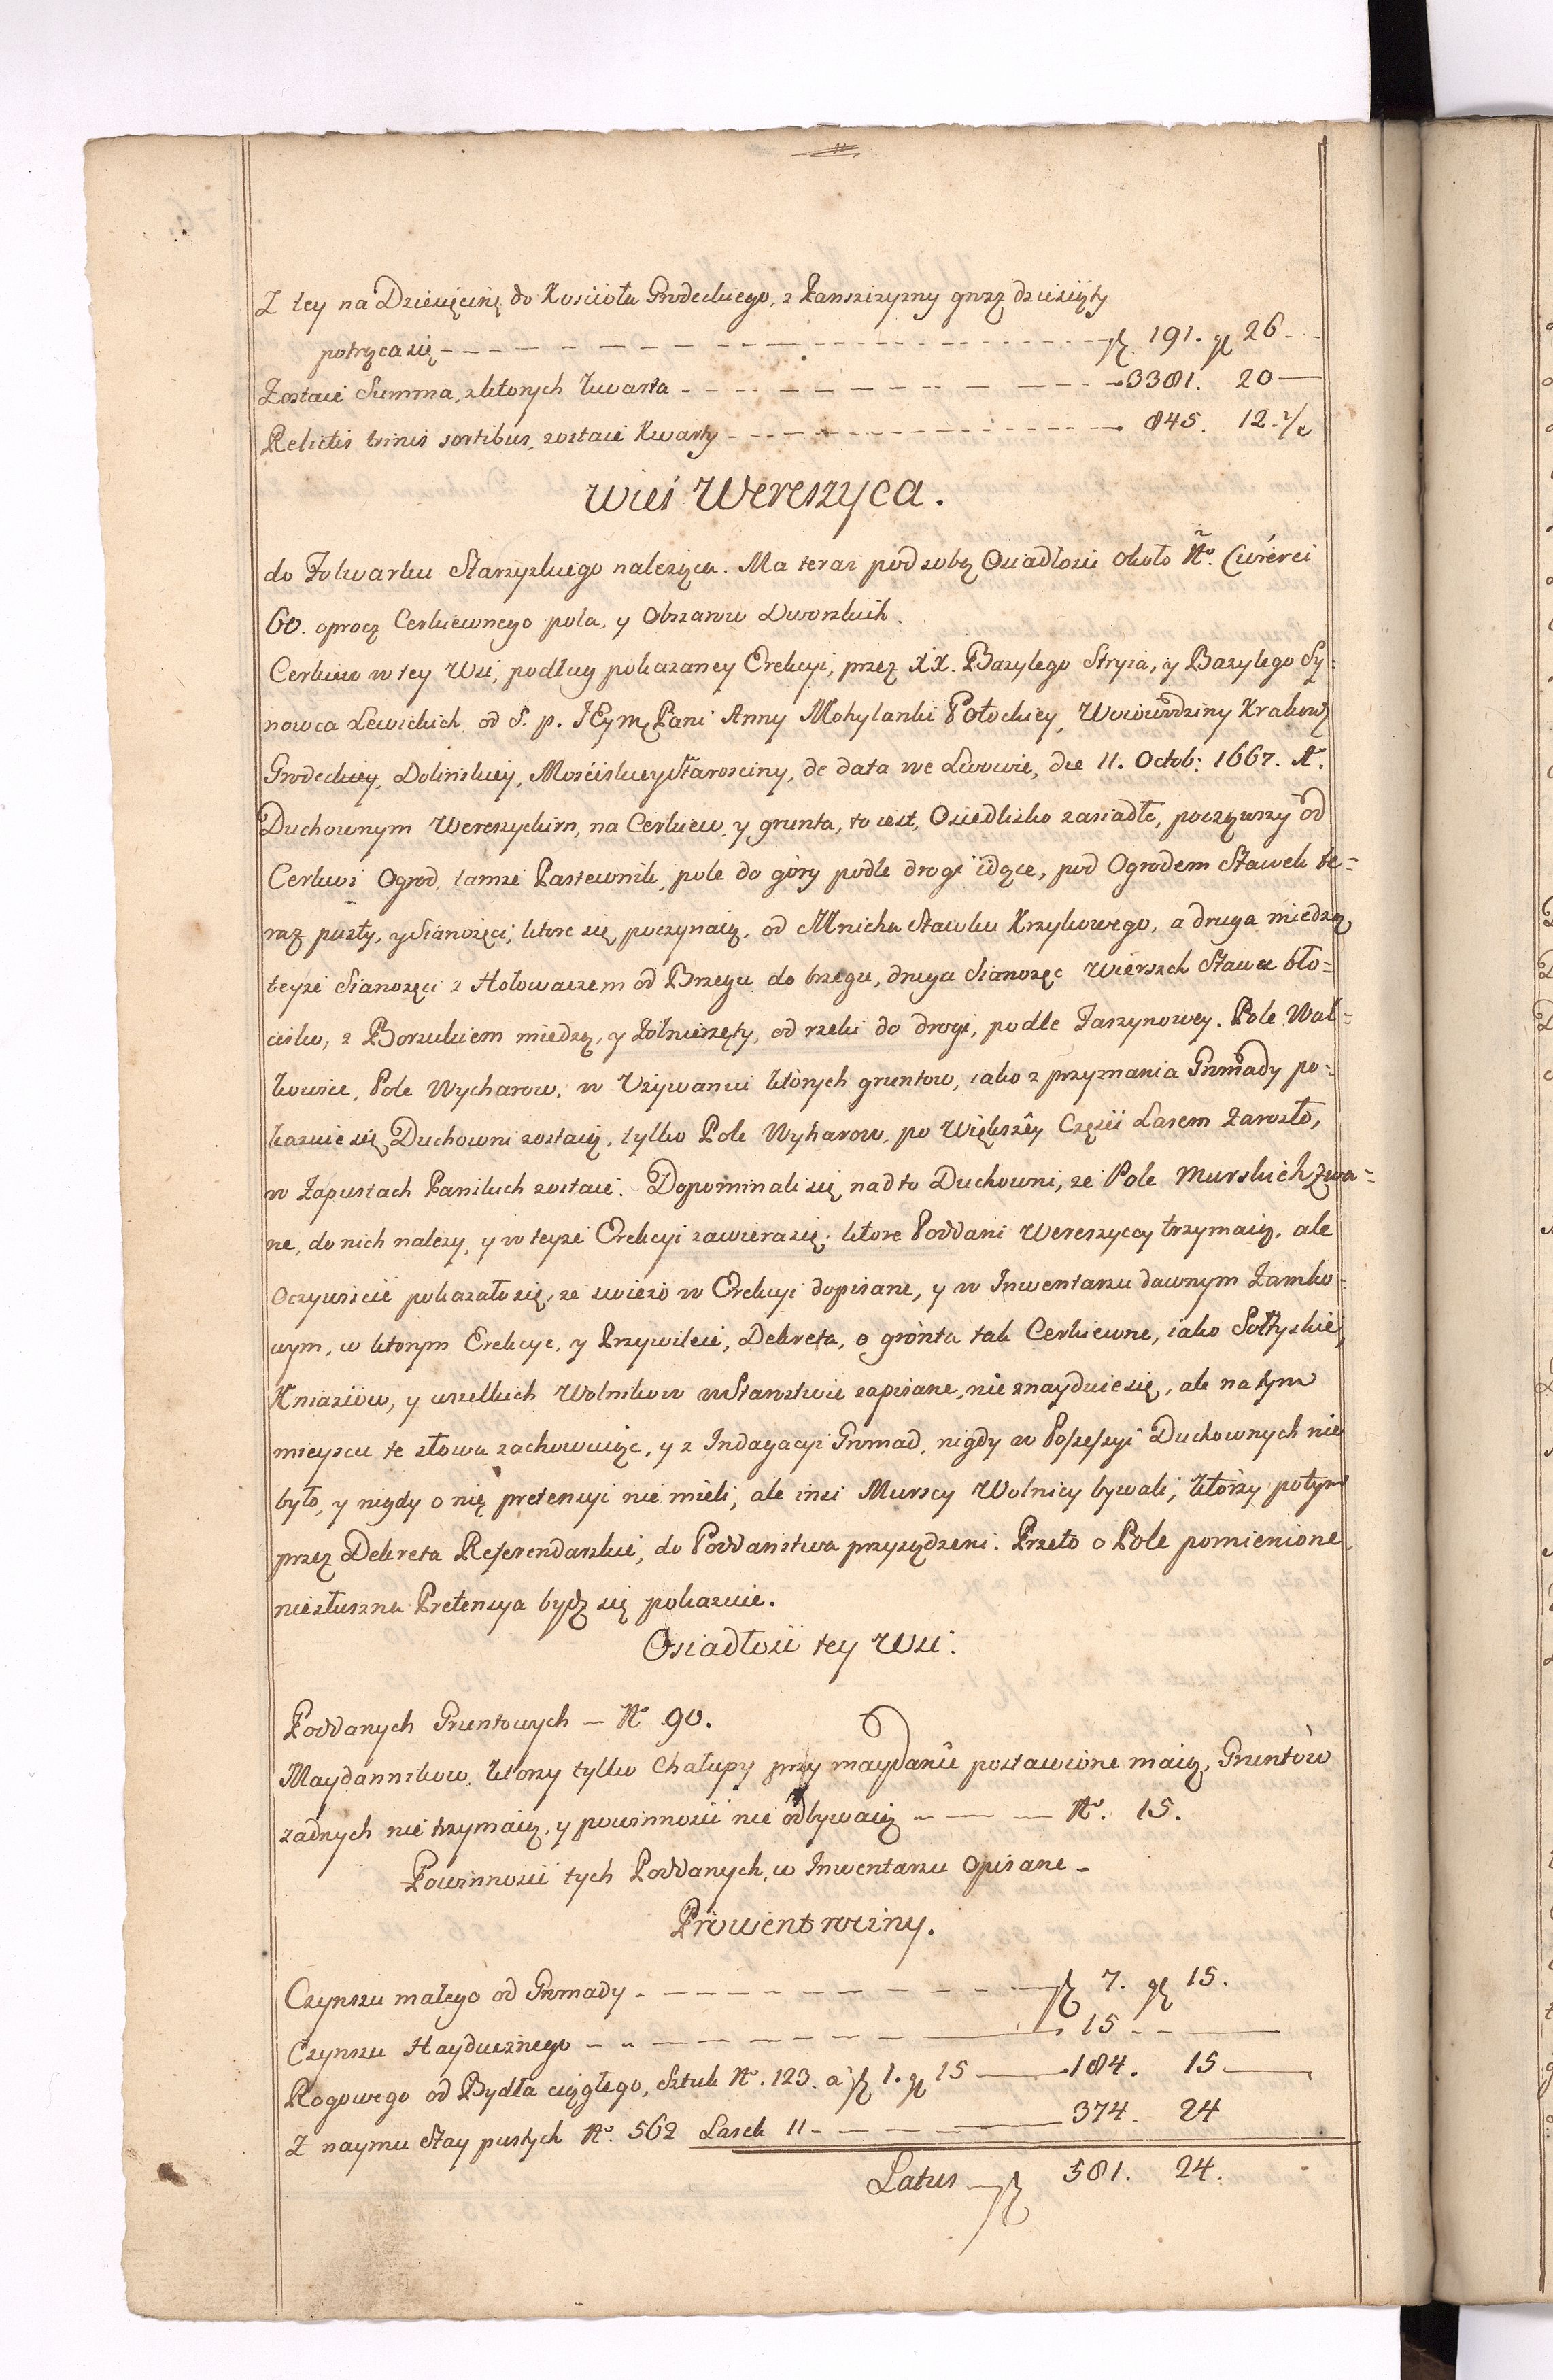 Z tey na Dziesięcinę do Kościoła Grodeckiego, z Panszczyzny grosz dziesiąty
potrąca się - - - - zł 191. gr 26 - -
Zostaie Summa, z ktorych kwarta - - - - 3381. 20 —
Relictis trinis sortibus, zostaie Kwarty - - - - 845. 12. ½
Wieś Wereszyca.
do Folwarku Starzyskiego należąca. Ma teraz pod sobą Osiadłosci około Nro. Cwierci
60. oprocz Cerkiewnego pola, y Obszarow Dworskich.
Cerkiew w tey Wsi, podług pokazaney Erekcyi, przez XX. Bazylego Stryia, y Bazylego Sy=
nowca Lewickich od S. p. JEymę Pani Anny Mohylanki Potockiey, Woiewodziny Krakow
Grodeckiey, Dolińskiey, Mościskiey Starosciny, de data we Lwowie, die 11. Octob: 1667. Ao.
Duchownym Wereszyckim, na Cerkiew, y grunta, to iest, Osiedlisko zasiadłe, począwszy od
Cerkwi Ogrod, tamże Pastewnik, pole do góry podle drogi idące, pod Ogrodem Stawek te=
raz pusty, y Sianożęci, ktore się poczynaią, od Mnicha Stawku Krzykowego, a druga miedzą
teyże Sianożęci z Hołowaczem od Brzegu do brzegu, druga Sianożęc Wierszch Stawu bło=
cisko, z Borzukiem miedzą, y Żołnierzęty, od rzeki do drogi, podle Jarzynowey. Pole Wal=
kowice, Pole Wycharow: w Używaniu których gruntow, iako z przyznania Gromady po=
kazuie się Duchowni zostaią, tylko Pole Wyharow, po Większey Części Lasem zarosło,
w Zapustach Panskich zostaie. Dopominali się nad to Duchowni, że Pole Murskich Zwa=
ne, do nich nalezy, y w teyże Erekcyi zawiera się: ktore Poddani Wereszyccy trzymaią, ale
Oczywiscie pokazało się, że swieżo w Erekcyi dopisane, y w Inwentarzu dawnym Zamko=
wym, w ktorym Erekcye, y Przywileie, Dekreta, o grónta tak Cerkiewne, iako Sołtyskie,
Kniaziow, y wszelkich Wolnikow w Starostwie zapisane, nie znayduie się, ale na tym
mieyscu te słowa zachowuiąc, y z Indagacyi Gromad, nigdy w Possessyi Duchownych nie
było, y nigdy o nię pretensyi nie mieli, ale insi Murscy Wolnicy bywali, którzy potym
przez Dekreta Referendarskie, do Poddanstwa przysądzeni. Przeto o Pole pomienione
niesłuszna Pretensya bydz się pokazuie.
Osiadłosć tey Wsi.
Poddanych Gruntowych — No 90.
Maydannikow, ktorzy tylko Chałupy przy maydanie postawione maią, Gruntów
zadnych nie trzymaią, y powinnosci nie odbywaią — — — No. 15.
Powinnosci tych Poddanych, w Inwentarzu Opisane -
Prowent roczny.
Czynszu małego od Gromady - - - - zł 7. gr 15.
Czynszu Hayducznego - - - - 15 - - —
Rogowego od Bydła ciągłego, Sztuk No. 123. a zł 1. gr 15 — 184. 15 —
Z naymu Stay pustych No. 562 Lasek 11 - - - - 374. 24
Latus — zł 581. 24.